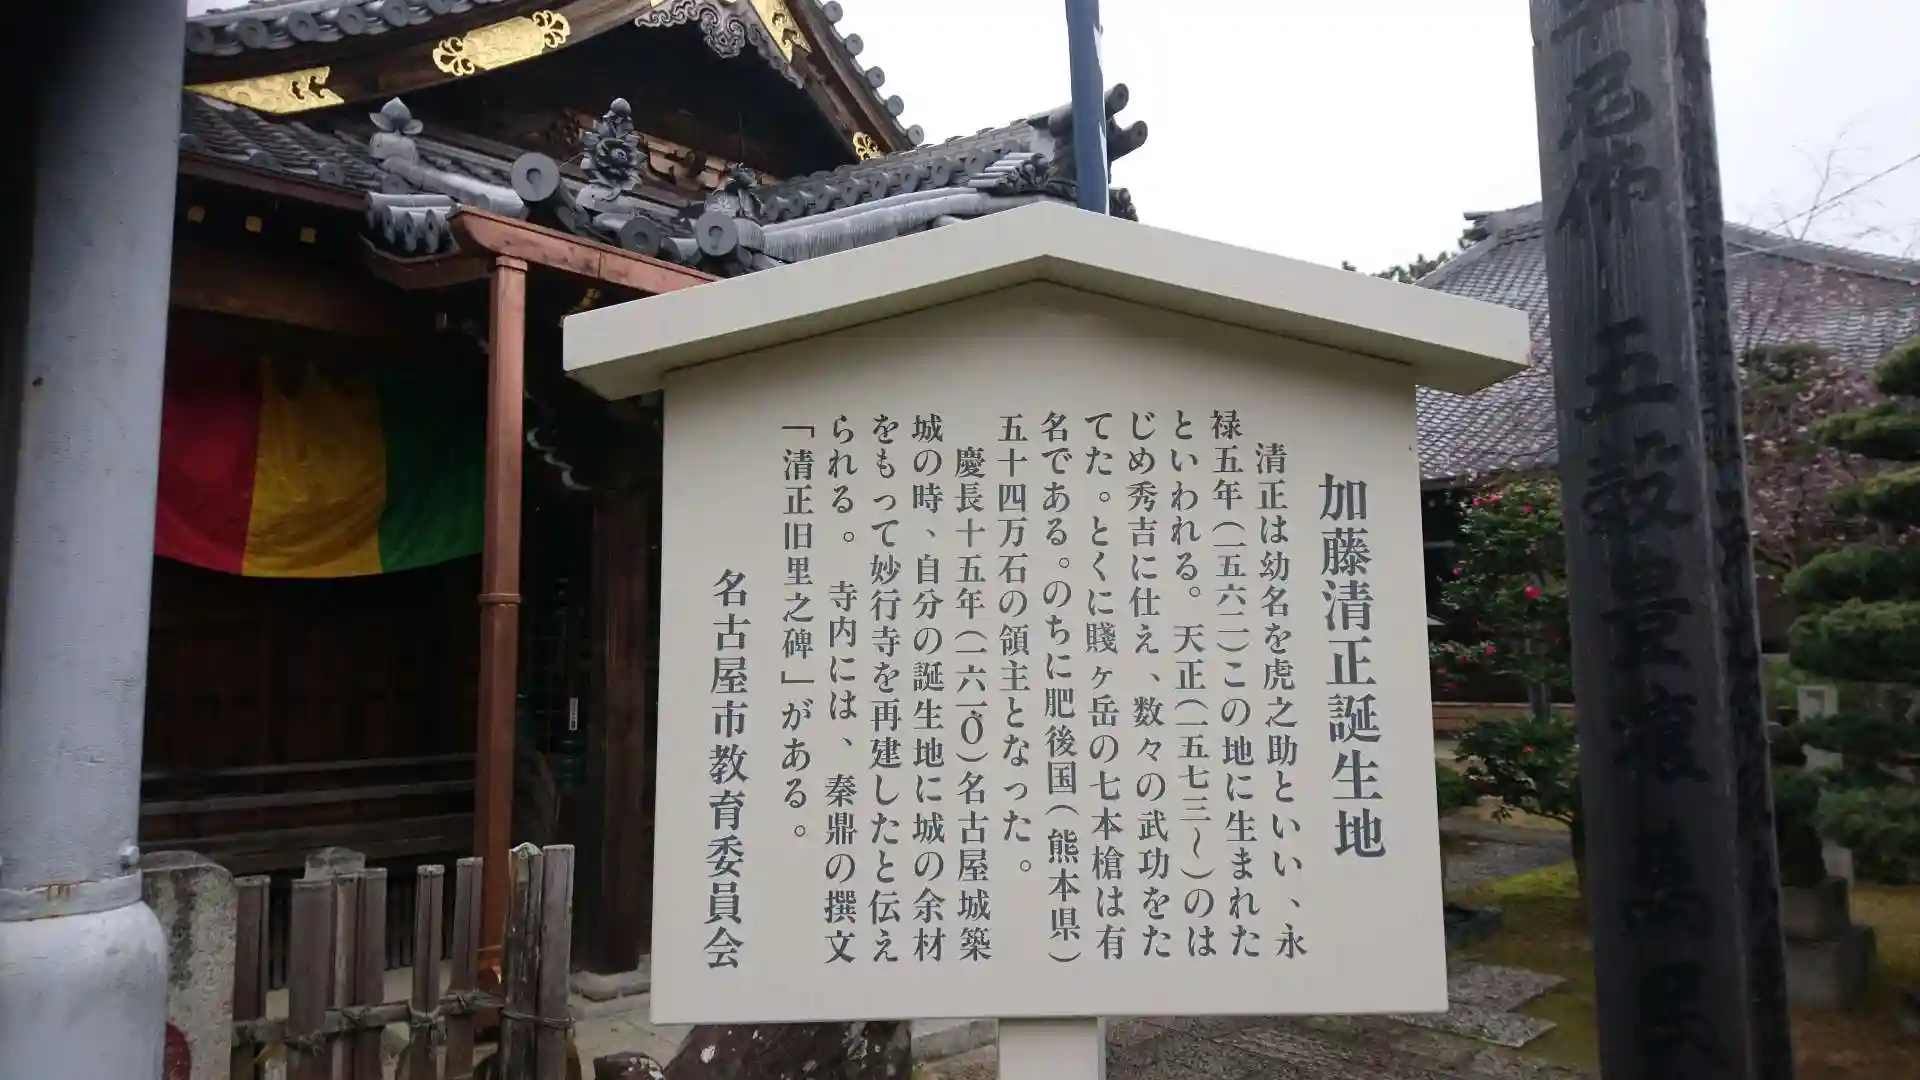 加藤清正誕生地
清正は幼名を虎之助といい、永
禄五年(一五六二)この地に生まれた
といわれる。天正(一五七三〜)のは
じめ秀吉に仕え、数々の武功をた
てた。とくに賤ヶ岳の七本槍は有
名である。のちに肥後国(熊本県)
五十四万石の領主となった。
慶長十五年(一六一〇)名古屋城築
城の時、自分の誕生地に城の余材
をもって妙行寺を再建したと伝え
られる。寺内には、秦鼎の撰文
「清正旧里之碑」がある。
名古屋市教育委員会
五穀豊穣